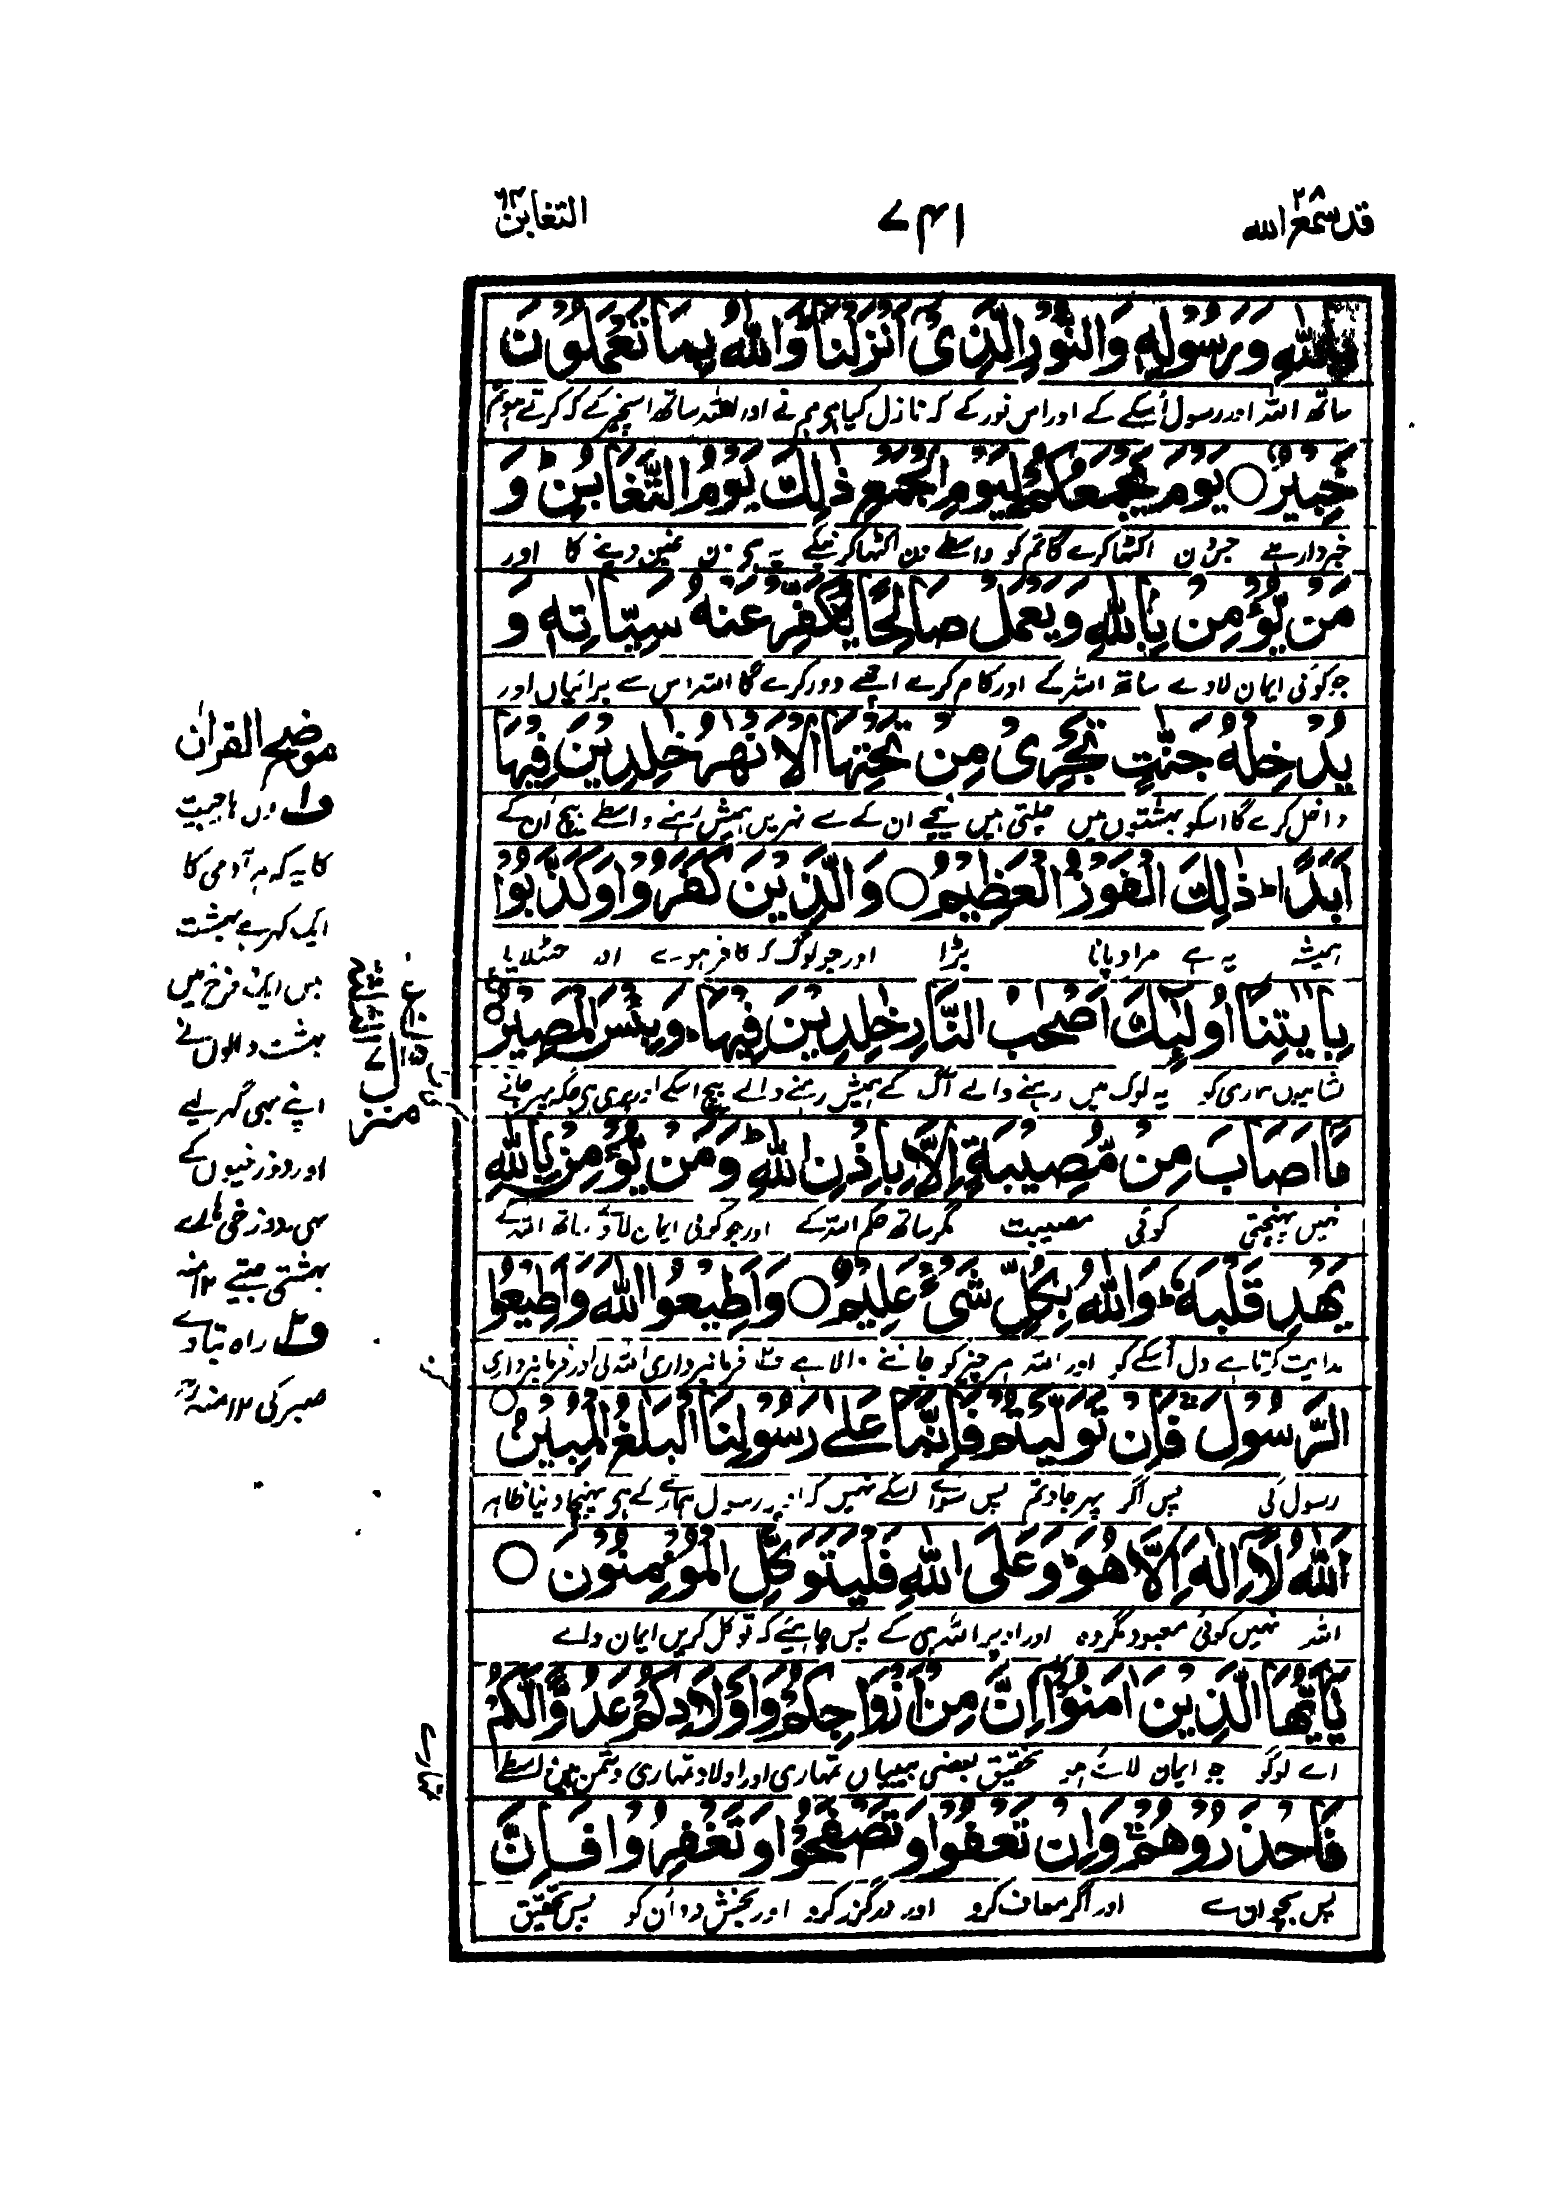 قد سمع الله ٢٨
٧٤١
التغابن ٦٤
بِاللّٰهِ وَرَسُوْلِهٖ وَالنُّوْرِ الَّذِىْٓ اَنْزَلْنَا وَاللّٰهُ بِمَا تَعْمَلُوْنَ
ساتھ اللہ اور رسول اُسکے کے اور اس نور کے کہ نازل کیا ہم نے اور اللہ ساتھ اس چیز کے کہ کرتے ہو تم
خَبِيْرٌ ○ يَوْمَ يَجْمَعُكُمْ لِيَوْمِ الْجَمْعِ ذٰلِكَ يَوْمُ التَّغَابُنِ ؕ وَ
خبردار ہے جس دن اکٹھا کرے گا تم کو واسطے دن اکٹھا کرنیکے یہ ہے دن غبن دینے کا اور
مَنْ يُّؤْمِنْ بِاللّٰهِ وَيَعْمَلْ صَالِحًا يُّكَفِّرْ عَنْهُ سَيِّاٰتِهٖ وَ
جو کوئی ایمان لاوے ساتھ اللہ کے اور کام کرے اچھے دور کرے گا اللہ اس سے برائیاں اور
يُدْخِلْهُ جَنّٰتٍ تَجْرِىْ مِنْ تَحْتِهَا الْاَنْهٰرُ خٰلِدِيْنَ فِيْهَآ
داخل کرے گا اسکو بہشتوں میں چلتی ہیں نیچے ان کے سے نہریں ہمیش رہنے واسطے بیچ اُن کے
اَبَدًا ؕ ذٰلِكَ الْفَوْزُ الْعَظِيْمُ ○ وَالَّذِيْنَ كَفَرُوْا وَكَذَّبُوْا
ہمیشہ یہ ہے مراد پانا بڑا اور جو لوگ کہ کافر ہوے اور جھٹلایا
بِاٰيٰتِنَآ اُولٰٓئِكَ اَصْحٰبُ النَّارِ خٰلِدِيْنَ فِيْهَا ؕ وَبِئْسَ الْمَصِيْرُ ○
نشانیوں ہماری کو یہ لوگ ہیں رہنے والے آگ کے ہمیش رہنے والے بیچ اسکے اور بری ہی جگہ پھر جانے
مَآ اَصَابَ مِنْ مُّصِيْبَةٍ اِلَّا بِاِذْنِ اللّٰهِ ؕ وَمَنْ يُّؤْمِنْۢ بِاللّٰهِ
نہیں پہنچتی کوئی مصیبت مگر ساتھ حکم اللہ کے اور جو کوئی ایمان لاوے ساتھ اللہ کے
يَهْدِ قَلْبَهٗ ؕ وَاللّٰهُ بِكُلِّ شَىْءٍ عَلِيْمٌ ○ وَاَطِيْعُوا اللّٰهَ وَاَطِيْعُوا
ہدایت کرتا ہے دل اُسکے کو اور اللہ ہر چیز کو جاننے والا ہے ف٢ فرمانبرداری اللہ کی اور فرمانبرداری
الرَّسُوْلَ ۚ فَاِنْ تَوَلَّيْتُمْ فَاِنَّمَا عَلٰى رَسُوْلِنَا الْبَلٰغُ الْمُبِيْنُ ○
رسول کی پس اگر پھر جاؤ تم پس سواے اسکے نہیں کہ اوپر رسول ہمارے کے ہی پہنچا دینا ظاہر
اَللّٰهُ لَآ اِلٰهَ اِلَّا هُوَ ؕ وَعَلَى اللّٰهِ فَلْيَتَوَكَّلِ الْمُؤْمِنُوْنَ ○
اللہ نہیں کوئی معبود مگر وہ اور اوپر اللہ ہی کے پس چاہیئے کہ توکل کریں ایمان والے
يٰٓاَيُّهَا الَّذِيْنَ اٰمَنُوْٓا اِنَّ مِنْ اَزْوَاجِكُمْ وَاَوْلَادِكُمْ عَدُوًّا لَّكُمْ
اے لوگو جو ایمان لائے ہو تحقیق بعضی بیبیاں تمہاری اور اولاد تمہاری دشمن ہیں واسطے
تمہارے
فَاحْذَرُوْهُمْ ۚ وَاِنْ تَعْفُوْا وَتَصْفَحُوْا وَتَغْفِرُوْا فَاِنَّ
پس بچو ان سے اور اگر معاف کرو اور درگزر کرو اور بخش دو اُن کو پس تحقیق
موضح القرآن
ف١
کا یہ کہ ہر آدمی کا
ایک گھر ہے بہشت
میں ایک دوزخ میں
بہشت والوں نے
اپنے بھی گھر لیے
اور دوزخیوں کے
بھی دوزخی ہارے
بہشتی جیتے ١٢ منہ
ف٢ راہ بتاوے
صبر کی ١٢ منہ
منزل ٧